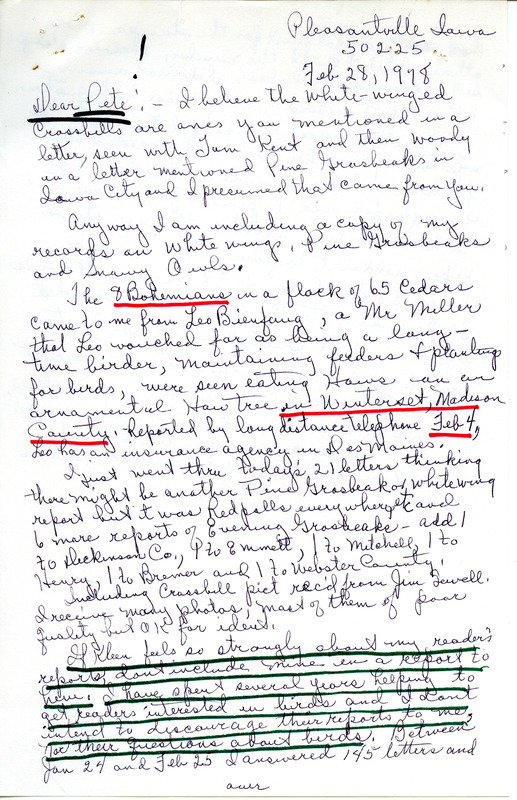 Pleasantville Iowa
50225
Feb 28, 1978
!
Dear Pete: - I believe the white-winged
Crossbills are ones you mentioned in a
letter, seen with Tom Kent and then Woody
in a letter mentioned Pine Grosbeaks in
Iowa City and I presumed that came from you.
Anyway I am including a copy of my
records on White wings, Pine Grosbeaks
and Snowy Owls.
The 8 Bohemians in a flock of 65 Cedars
came to me from Leo Bienfang, a Mr Miller
that Leo vouched for as being a long-
time birder, maintaining feeders & planting
for birds, were seen eating Haws on an
ornamental Haw tree in Winterset, Madison
County. Reported by long distance telephone Feb 4,
Leo has an insurance agency in Des Moines.
I just went thru todays 21 letters thinking
there might be another Pine Grosbeak or whitewing
report but it was Redpolls everywhere and
6 more reports of Evening Grosbeaks - add 1
to Dickinson Co., 1 to Emmett, 1 to Mitchell, 1 to
Henry, 1 to Bremer and 1 to Webster County.
Including Crossbill pict rec'd from Jim Sewell.
I receive many photos, most of them of poor
quality but O.K. for ident.
If Kleen feels so strongly about my reader's
reports, dont include mine in a report to
him. I have spent several years helping to
get readers interested in birds and I dont
intend to discourage their reports to me,
or their questions about birds. Between
Jan 24 and Feb 25 I answered 145 letters and
over